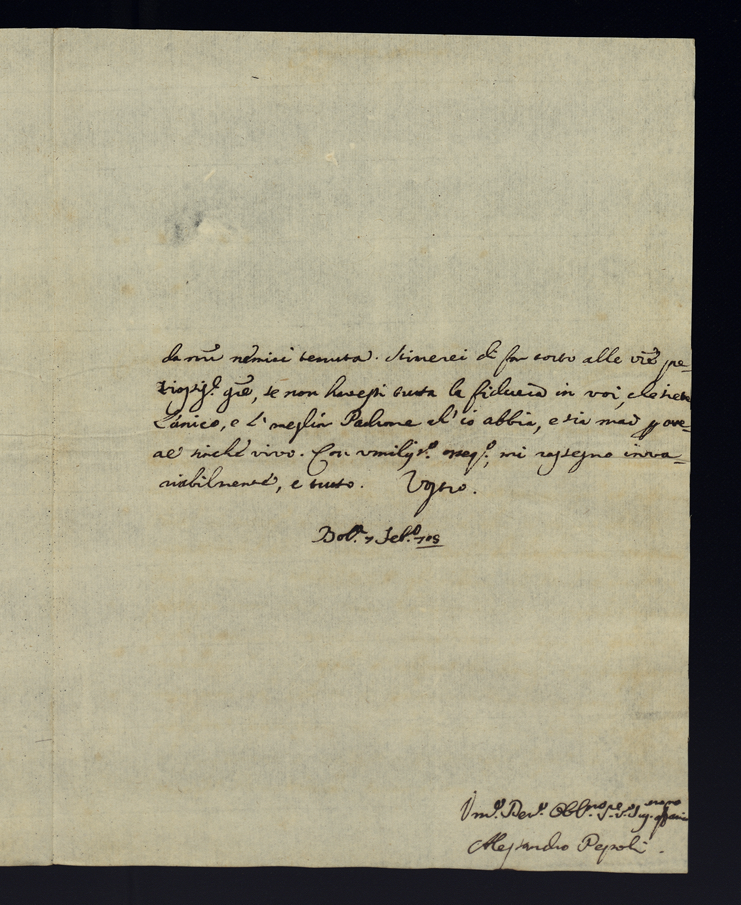 da miei nemici tenuta. Stimerei di far torto alle vr̃e pre-
ziosiss.e gr̃e, se non havessi tutta la fiducia in voi, che siete
l'unico, e 'l meglior Padrone ch'io abbia, e sia mai p ave-
re sinché vivo. Con umiliss.o osseq.o, mi rassegno inva-
riabilmente, e tutto. Vostro.
Bol.a 7 Feb.o 705
Um.o Dev.o Obb.mo
Alessandro Pepoli.